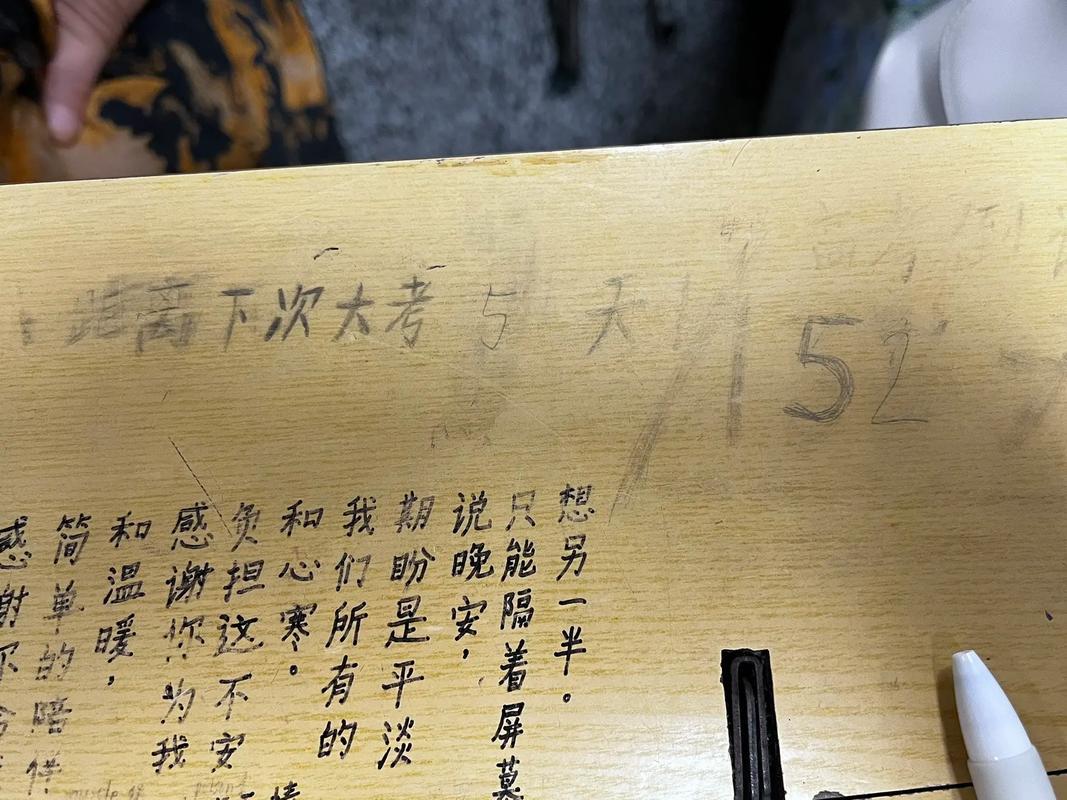 距离下次大考 5 天
高考倒
52
感谢
简单的陪伴
和温暖，
感谢你为我
负担这不安
和心寒。
我们所有的
期盼是平淡
说晚安，
只能隔着屏幕
想另一半。